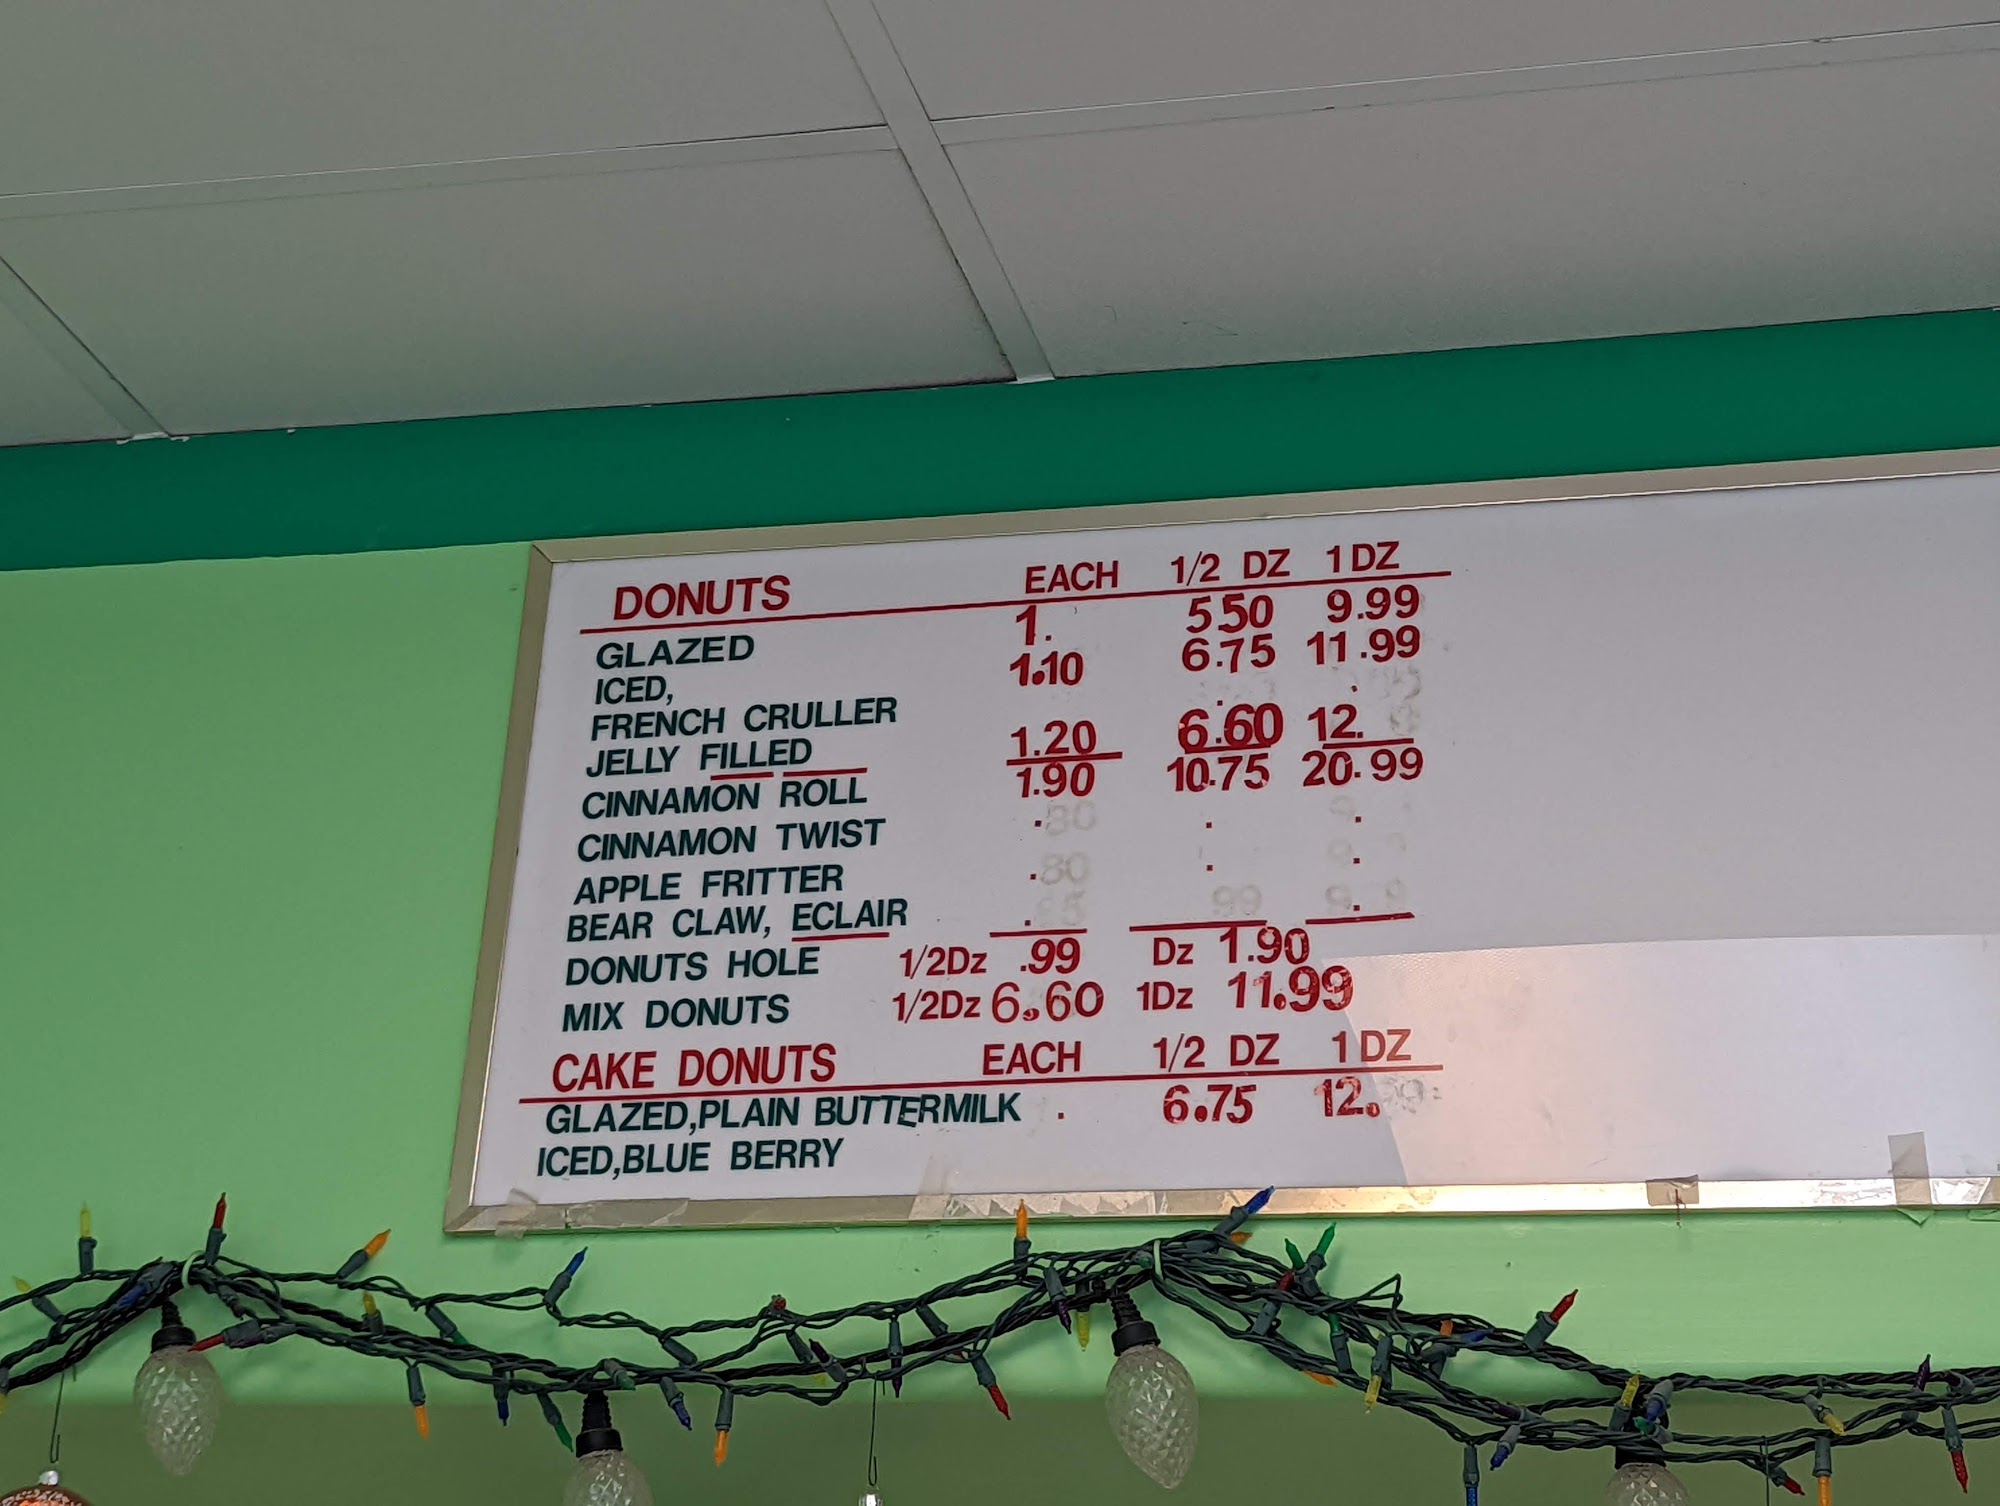 DONUTS EACH 1/2 DZ 1 DZ
GLAZED 1. 5.50 9.99
ICED, 1.10 6.75 11.99
FRENCH CRULLER . .
JELLY FILLED 1.20 6.60 12.
CINNAMON ROLL 1.90 10.75 20.99
CINNAMON TWIST . . .
APPLE FRITTER . . .
BEAR CLAW, ECLAIR . .
DONUTS HOLE 1/2Dz .99 Dz 1.90
MIX DONUTS 1/2Dz 6.60 1Dz 11.99
CAKE DONUTS EACH 1/2 DZ 1 DZ
GLAZED,PLAIN BUTTERMILK . 6.75 12.
ICED,BLUE BERRY